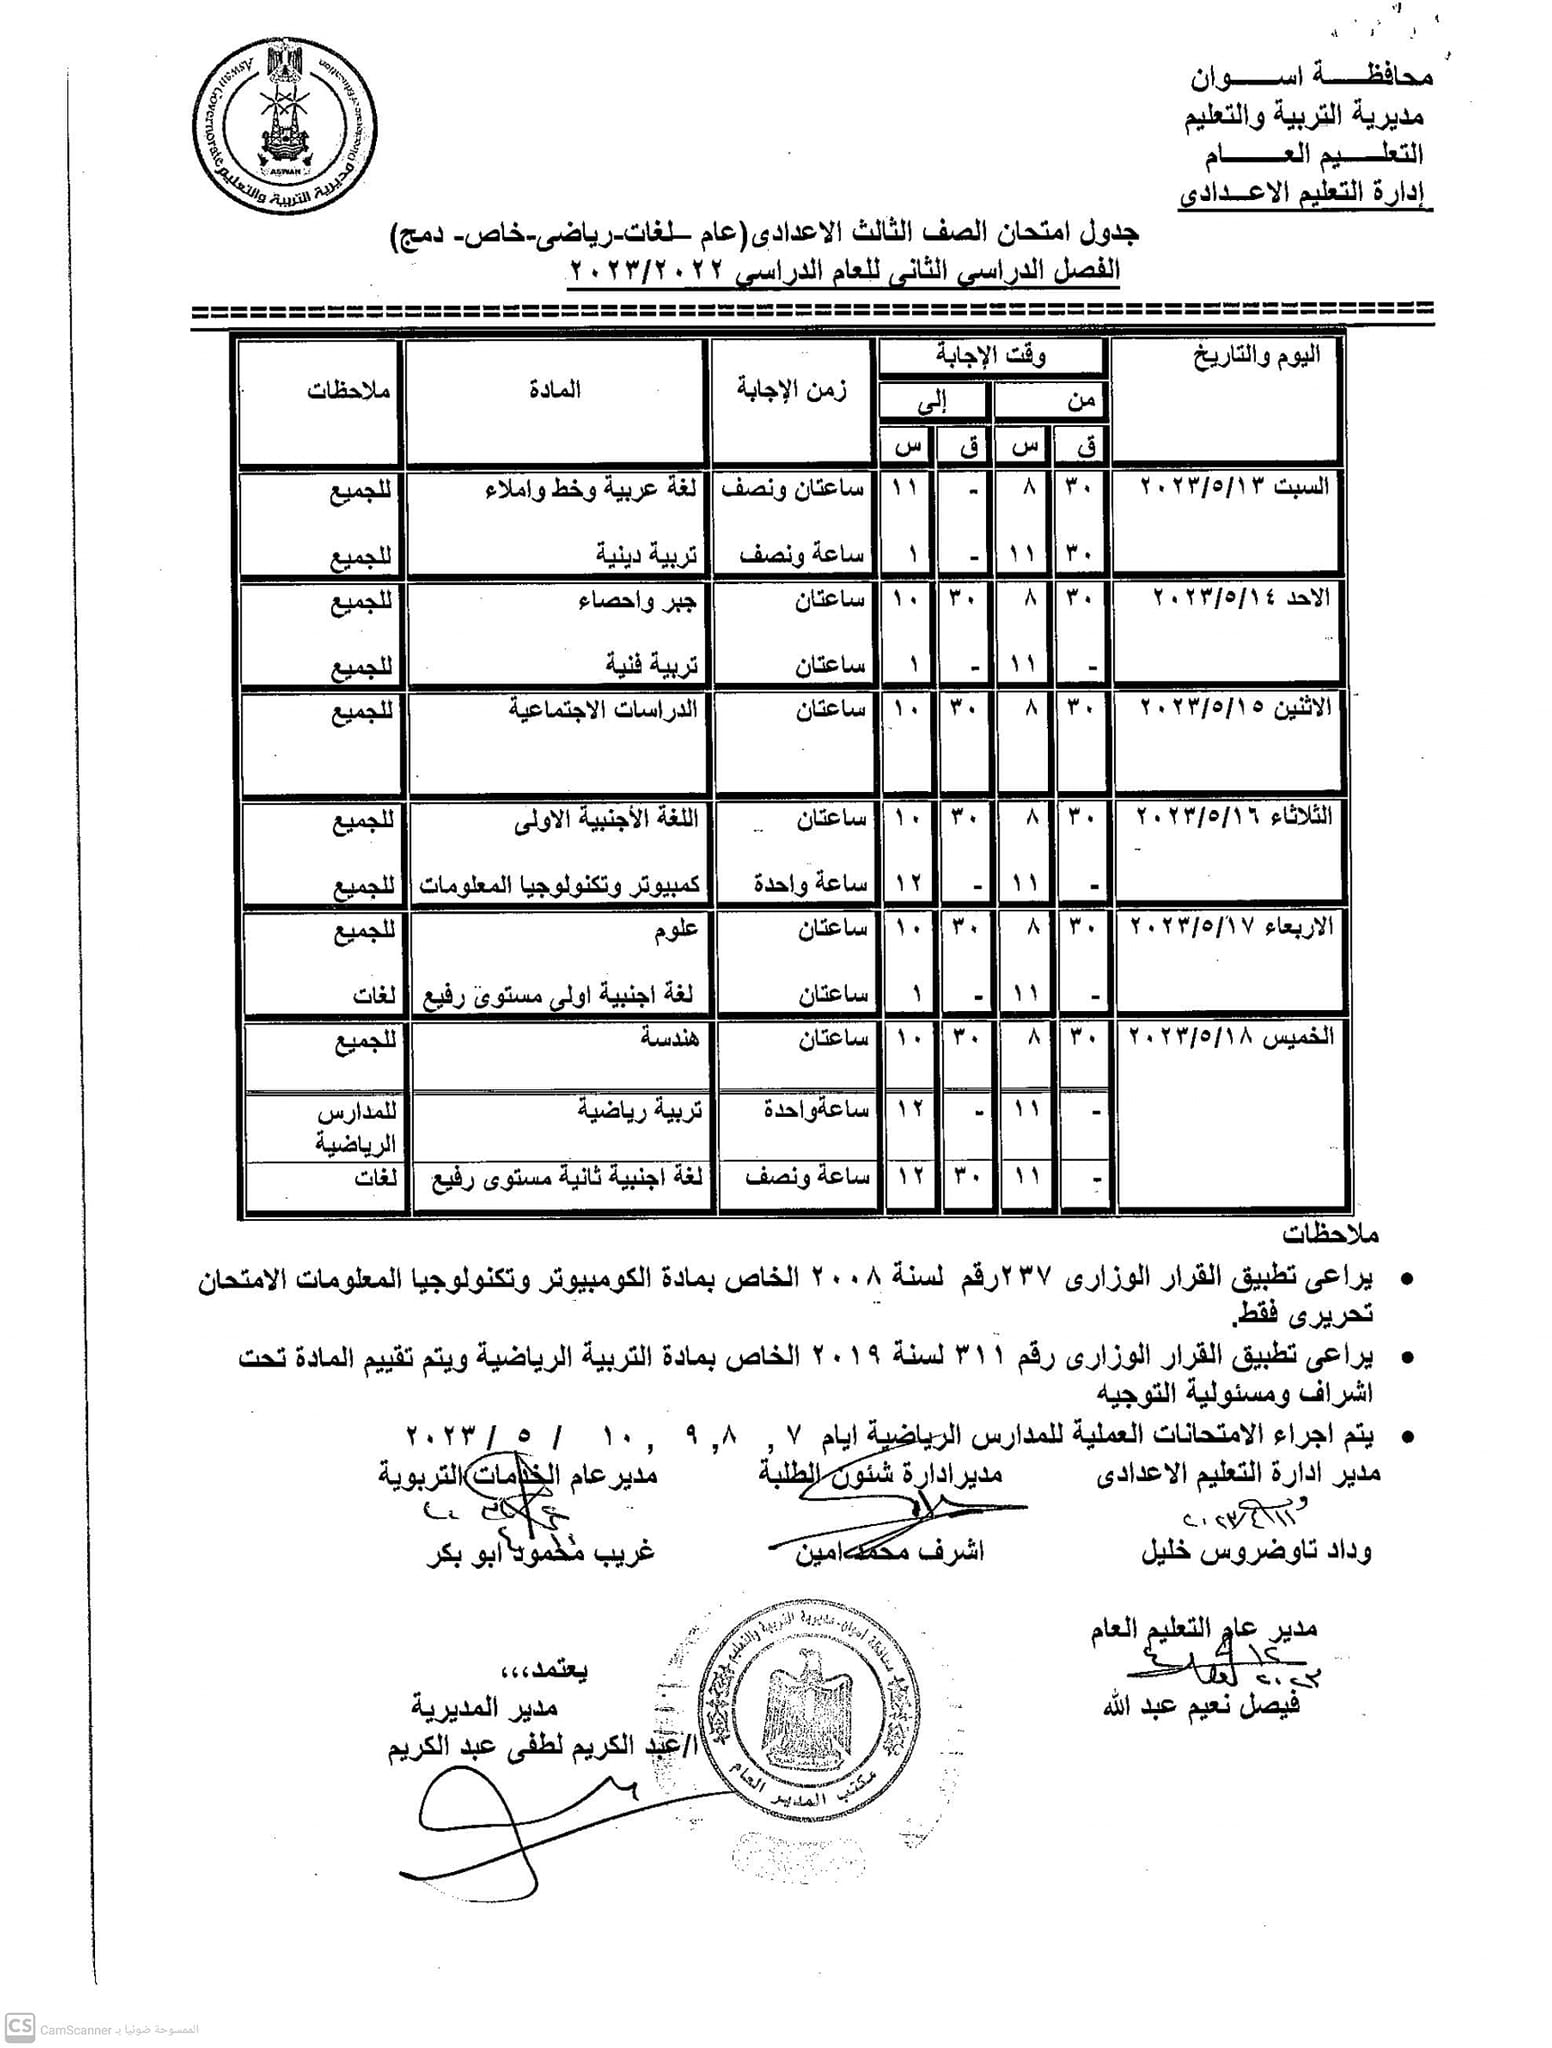 محافظـــة اســـوان
مديرية التربية والتعليم
التعلـــيم العـــام
إدارة التعليم الاعـدادى
Aswan Governorate
Directorate of Education
ASWAN
مديرية التربية والتعليم
جدول امتحان الصف الثالث الاعدادى(عام –لغات-رياضى-خاص- دمج)
الفصل الدراسي الثانى للعام الدراسي ٢٠٢٣/٢٠٢٢
اليوم والتاريخ وقت الإجابة زمن الإجابة المادة ملاحظات
من إلي
ق س ق س
السبت ٢٠٢٣/٥/١٣ ٣٠ ٨ - ١١ ساعتان ونصف لغة عربية وخط واملاء للجميع
٣٠ ١١ - ١ ساعة ونصف تربية دينية للجميع
الاحد ٢٠٢٣/٥/١٤ ٣٠ ٨ ٣٠ ١٠ ساعتان جبر واحصاء للجميع
- ١١ - ١ ساعتان تربية فنية للجميع
الاثنين ٢٠٢٣/٥/١٥ ٣٠ ٨ ٣٠ ١٠ ساعتان الدراسات الاجتماعية للجميع
الثلاثاء ٢٠٢٣/٥/١٦ ٣٠ ٨ ٣٠ ١٠ ساعتان اللغة الأجنبية الاولى للجميع
- ١١ - ١٢ ساعة واحدة كمبيوتر وتكنولوجيا المعلومات للجميع
الاربعاء ٢٠٢٣/٥/١٧ ٣٠ ٨ ٣٠ ١٠ ساعتان علوم للجميع
- ١١ - ١ ساعتان لغة اجنبية اولى مستوى رفيع لغات
الخميس ٢٠٢٣/٥/١٨ ٣٠ ٨ ٣٠ ١٠ ساعتان هندسة للجميع
- ١١ - ١٢ ساعةواحدة تربية رياضية للمدارس
الرياضية
- ١١ ٣٠ ١٢ ساعة ونصف لغة اجنبية ثانية مستوى رفيع لغات
ملاحظات
• يراعى تطبيق القرار الوزارى ٢٣٧رقم لسنة ٢٠٠٨ الخاص بمادة الكومبيوتر وتكنولوجيا المعلومات الامتحان
تحريرى فقط.
• يراعى تطبيق القرار الوزارى رقم ٣١١ لسنة ٢٠١٩ الخاص بمادة التربية الرياضية ويتم تقييم المادة تحت
اشراف ومسئولية التوجيه
• يتم اجراء الامتحانات العملية للمدارس الرياضية ايام ٧ , ٨ ,٩ , ١٠ / ٥ / ٢٠٢٣
مدير ادارة التعليم الاعدادى مديرادارة شئون الطلبة مديرعام الخدمات التربوية
وداد تاوضروس خليل اشرف محمد امين غريب محمود ابو بكر
مدير عام التعليم العام
فيصل نعيم عبد الله
يعتمد،،،
مدير المديرية
ا/عبد الكريم لطفى عبد الكريم
محافظة أسوان. مديرية التربية والتعليم
مكتب المدير العام
CS CamScanner الممسوحة ضوئيا بـ